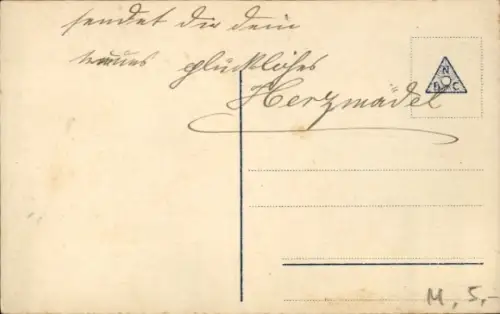 sendet dir dein
treues glückliches
Herzmädel
N
D C
M. 5,-